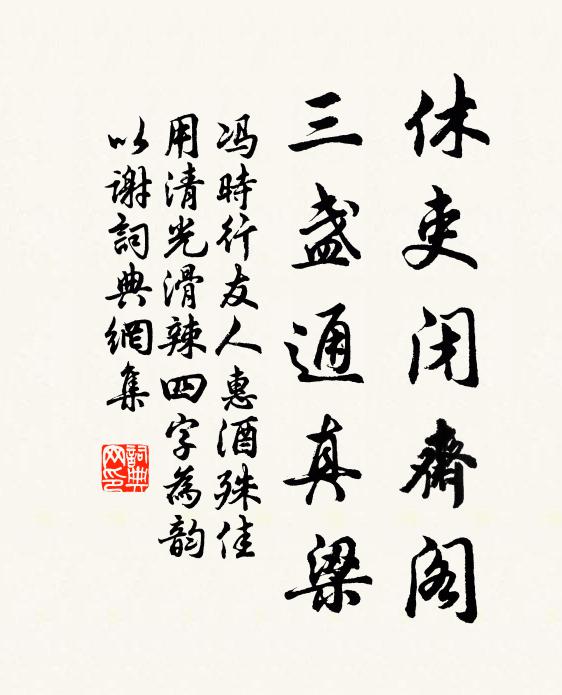 休吏闭齋阁
三盞通真梁
冯時行友人惠酒殊佳
用清光滑辣四字為韵
以謝詞典網集
詞典
网印